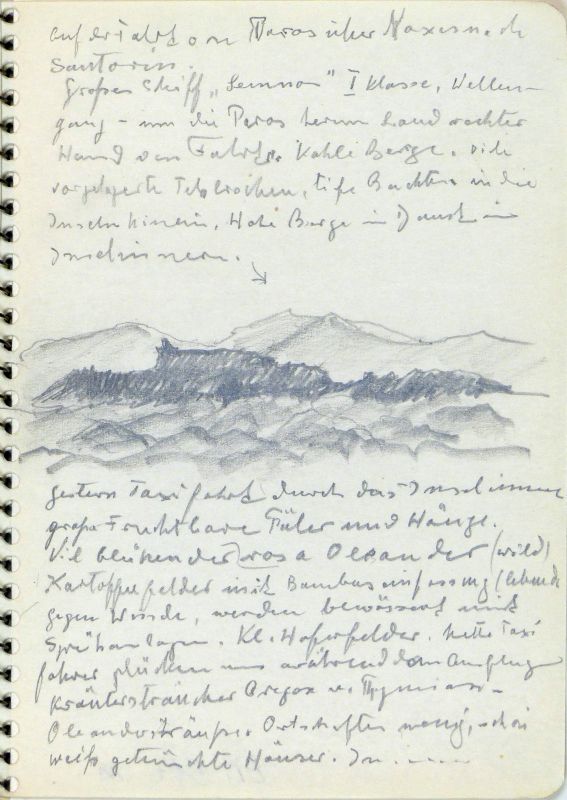 auf der Fahrt von Paros über Naxos nach
Santorin.
Großes Schiff „Lemnos" I Klasse, Wellen-
gang - um die Paros herum Land rechter
Hand von Fahrt. Kahle Berge. viele
vorgelagerte Felsbrocken, tife Buchten in die
Inseln hinein, Hohe Berge im Dunst im
Inselinnern.
gestern Taxifahrt durch das Inselinnere
große Fruchtbare Täler und Hänge.
Vil blühender rosa Oleander (wild)
Kartoffelfelder mit Bambuseinfassung (lebend
gegen Winde, werden bewässert mit
Sprühanlagen. Kl. Haferfelder. Nette Taxi
fahrer pflücken uns während dem Ausflug
Kräutersträucher Oregon u. Thymian-
Oleandersträuße. Ortschaften wenig, schön
weiß getünchte Häuser. In